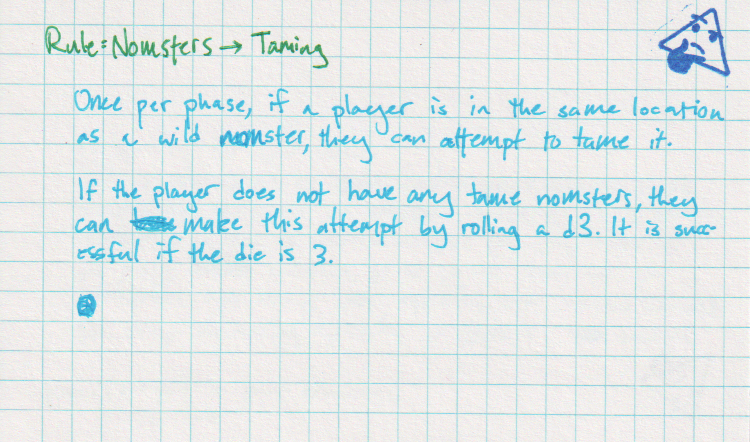 Rule: Nomsters → Taming
Once per phase, if a player is in the same location
as a wild nomster, they can attempt to tame it.
If the player does not have any tame nomsters, they
can make this attempt by rolling a d3. It is succ-
essful if the die is 3.